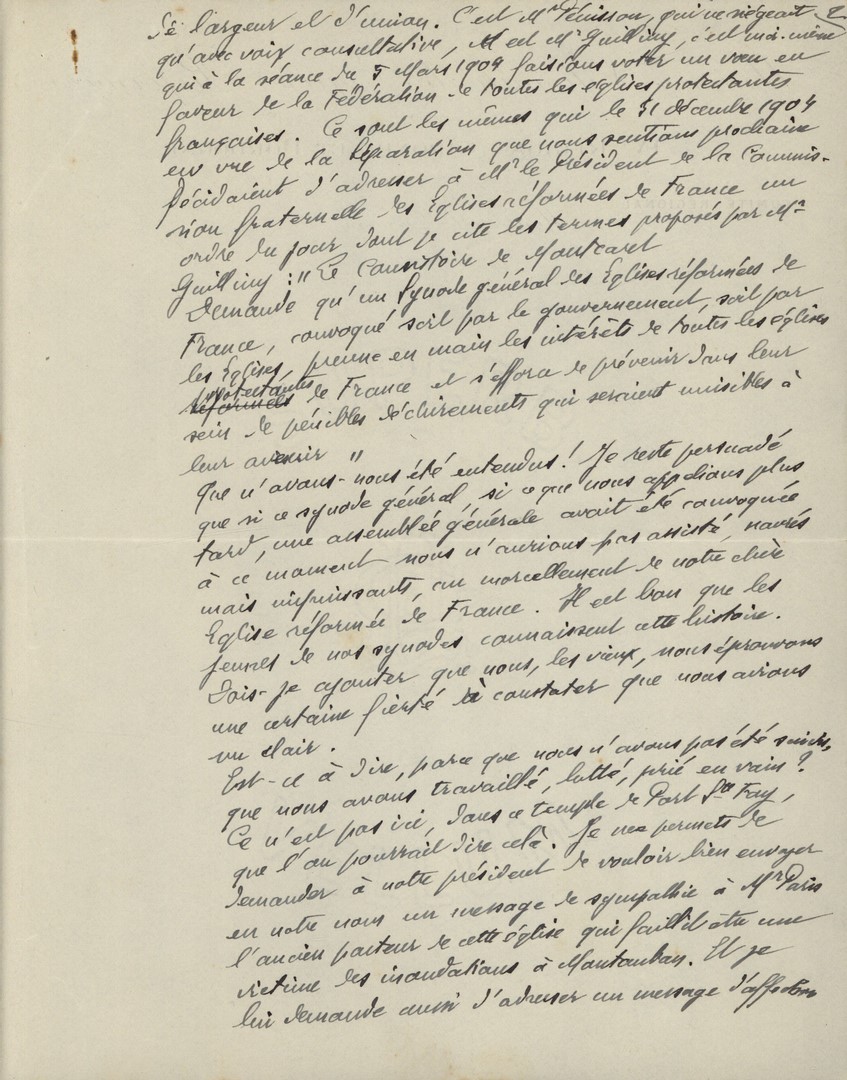 2
de largeur et d'union. C'est Mr Pénisson, qui ne siégeait
qu'avec voix consultative, M et Mr Guilliny, c'est moi-même
qui à la séance du 5 Mars 1904 faisions voter un vœu en
faveur de la Fédération de toutes les églises protestantes
françaises. Ce sont les mêmes qui le 31 décembre 1904
en vue de la Séparation que nous sentions prochaine
décidaient d'adresser à Mr le Président de la Commis-
sion fraternelle des Eglises réformées de France un
ordre du jour dont je cite les termes proposés par Mr
Guilliny : " Le Consistoire de Montcaret
Demande qu'un Synode général des Eglises réformées de
France, convoqué soit par le gouvernement, soit par
les Eglises, prenne en main les intérêts de toutes les églises
protestantes
réformées de France et s'efforce de prévenir dans leur
sein de pénibles déchirements qui seraient nuisibles à
leur avenir "
Que n'avons-nous été entendus ! Je reste persuadé
que si ce synode général, si ce que nous appelions plus
tard, une assemblée générale avait été convoquée
à ce moment nous n'aurions pas assisté, navrés
mais impuissants, au morcellement de notre chère
Eglise réformée de France. Il est bon que les
jeunes de nos synodes connaissent cette histoire.
Dois-je ajouter que nous, les vieux, nous éprouvons
une certaine fierté à constater que nous avions
vu clair.
Est-ce à dire, parce que nous n'avons pas été suivis,
que nous avons travaillé, lutté, prié en vain ?
Ce n'est pas ici, dans ce temple de Port Ste Foy,
que l'on pourrait dire celà. Je me permets de
demander à notre président de vouloir bien envoyer
en notre nom un message de sympathie à Mr Paris
l'ancien pasteur de cette église qui faillit être une
victime des inondations à Montauban. Et je
lui demande aussi d'adresser un message d'affection